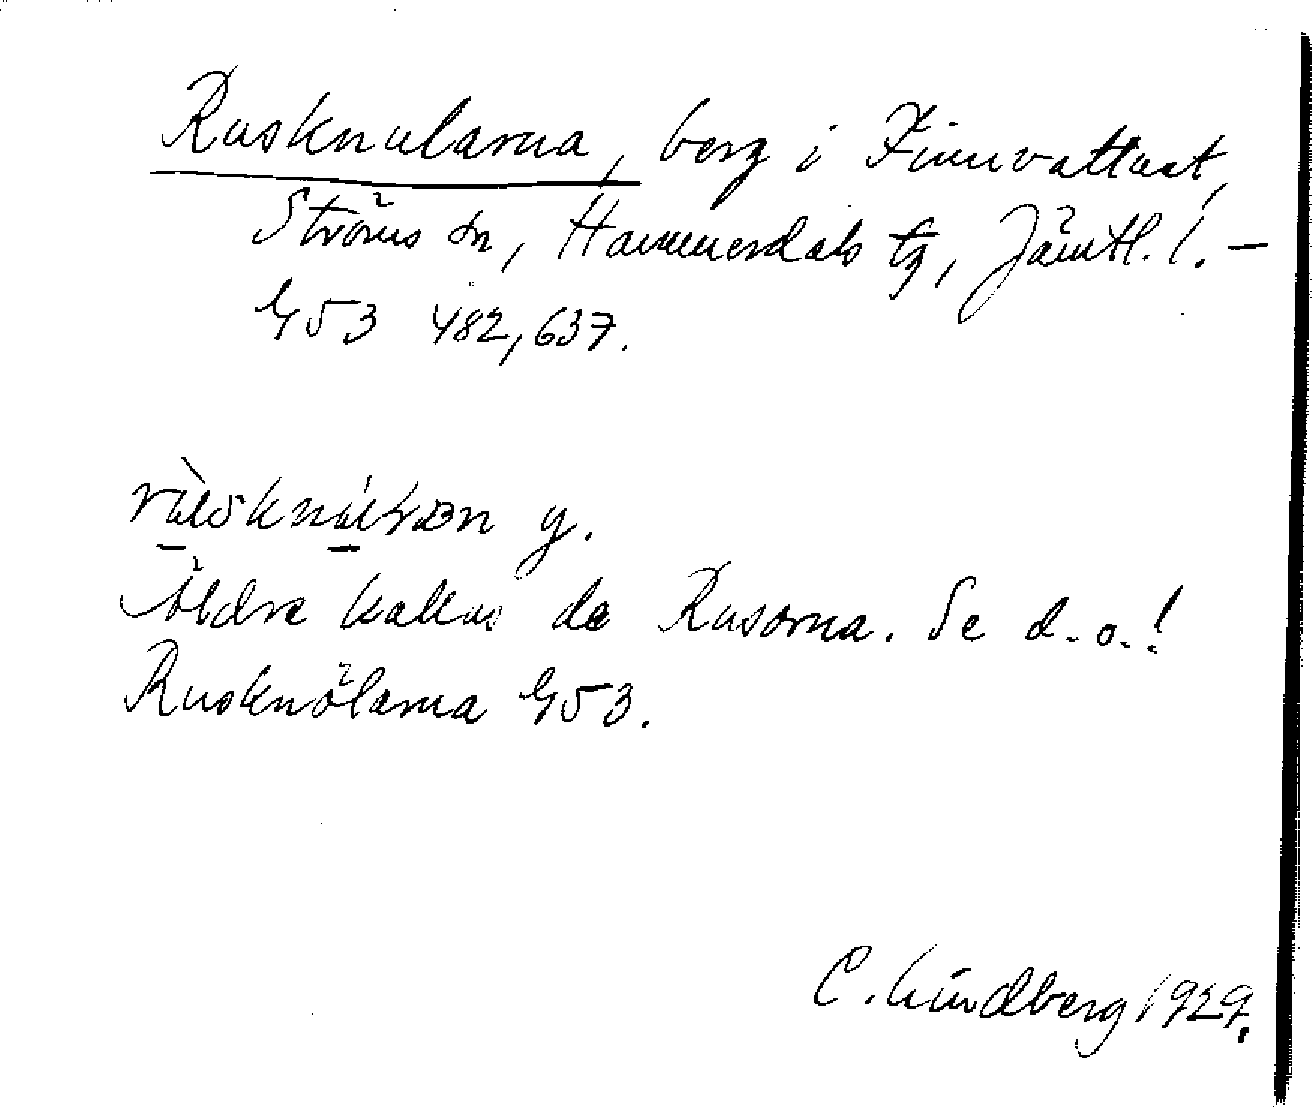 Rusknularna, berg i Finnvattnet,
Ströms sn, Hammerdals tg, Jämtl. l. –
G53 482,637.
y.
Äldre kallas de Rusorna. Se d. o.!
Rusknölarna G53.
C. Lindberg 1929.